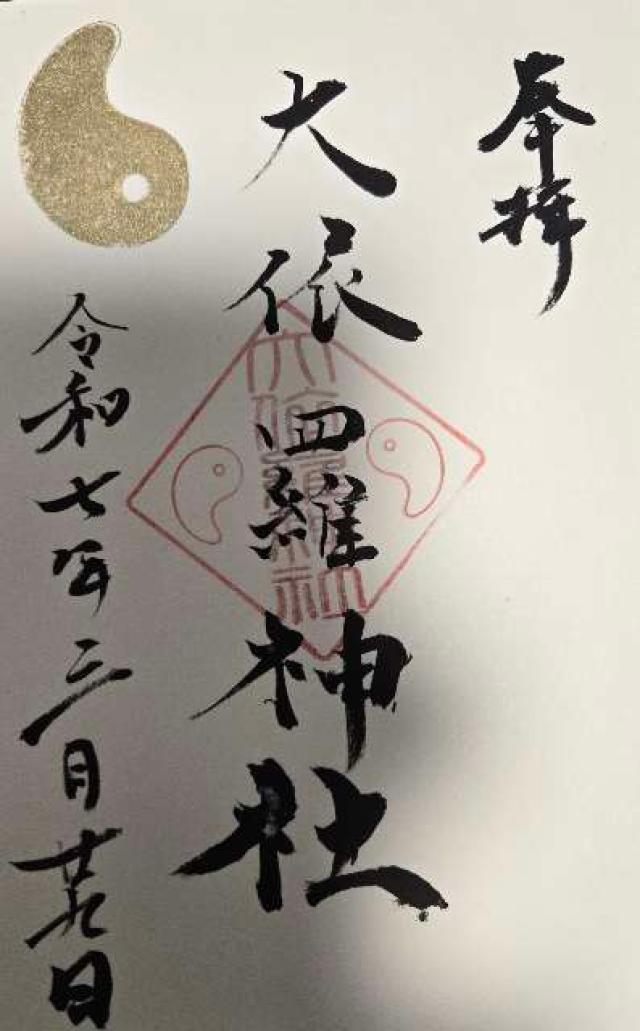 奉拝
大依羅神社
令和七年三月廿九日